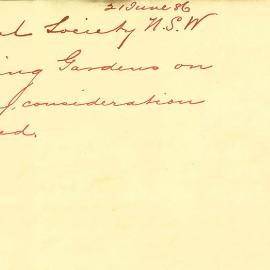 21 June 86
Society N.S.W
Gardens on
consideration